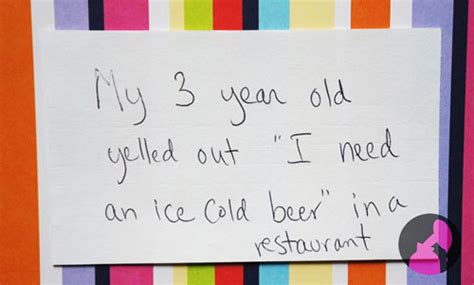 My 3 year old
yelled out "I need
an ice cold beer" in a
restaurant